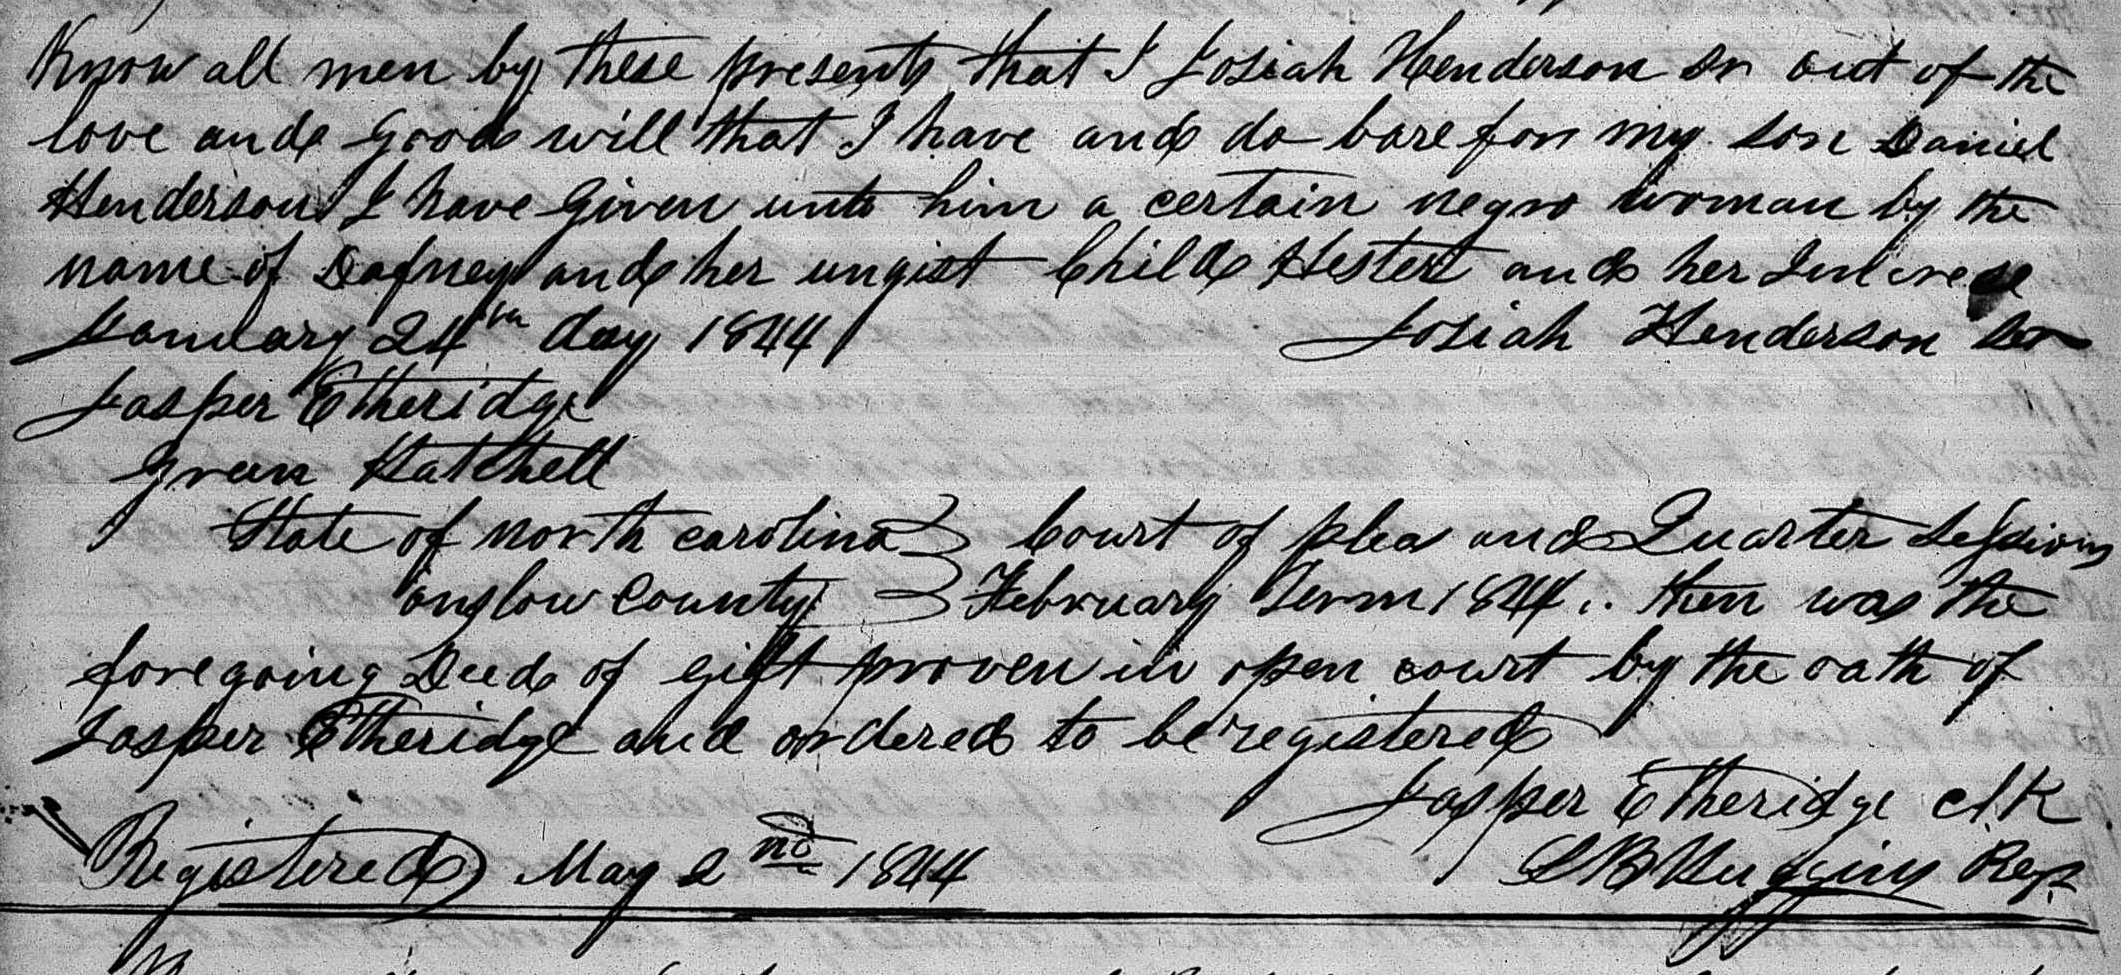 Know all men by these presents that I Josiah Henderson Sr out of the
love and good will that I have and do bare for my son Daniel
Henderson I have given unto him a certain negro woman by the
name of Dafney and her ungist Child Hester and her Increse
January 24th day 1844 Josiah Henderson Sr
Jasper Etheridge
Green Hatchell
State of north carolina Court of plea and Quarter Sessions
onslow County February Term 1844 .. then was the
foregoing Deed of gift proven in open court by the oath of
Jasper Etheridge and ordered to be registered
Jasper Etheridge clk
Registered May 2nd 1844 Huggins Reg.